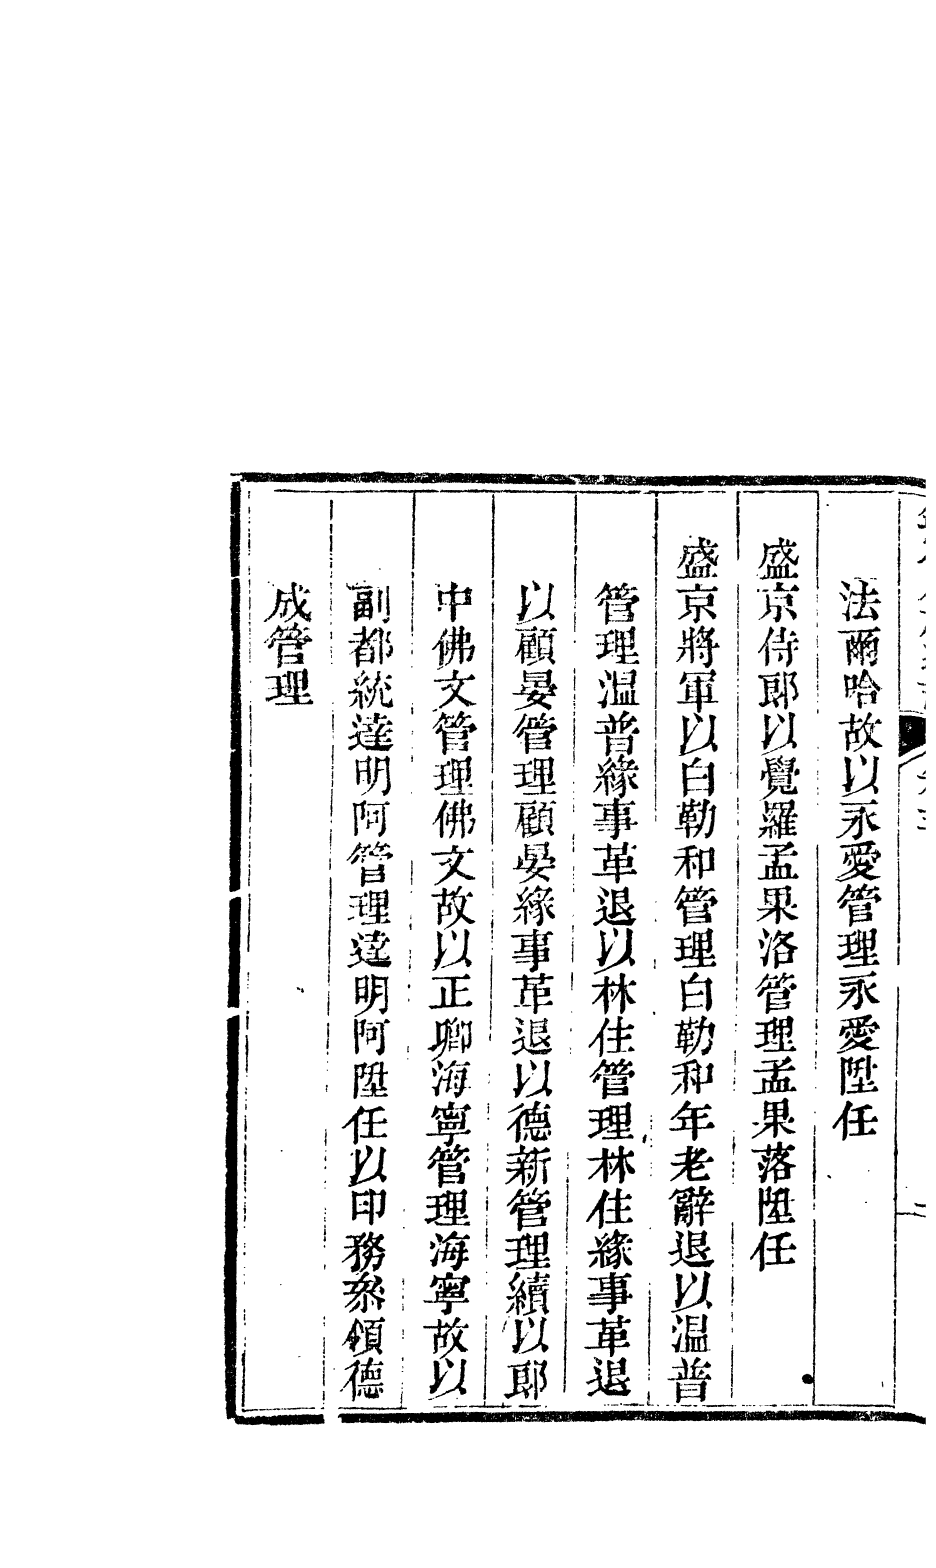 法爾哈故以永愛管理永愛陞任
盛京侍郎以覺羅孟果洛管理孟果落陞任
盛京將軍以白勒和管理白勒和年老辭退以溫普
管理溫普緣事革退以林住管理林住緣事革退
以顧晏管理顧晏緣事革退以德新管理續以郎
中佛文管理佛文故以正卿海寧管理海寧故以
副都統達明阿管理達明阿陞任以印務叅領德
成管理